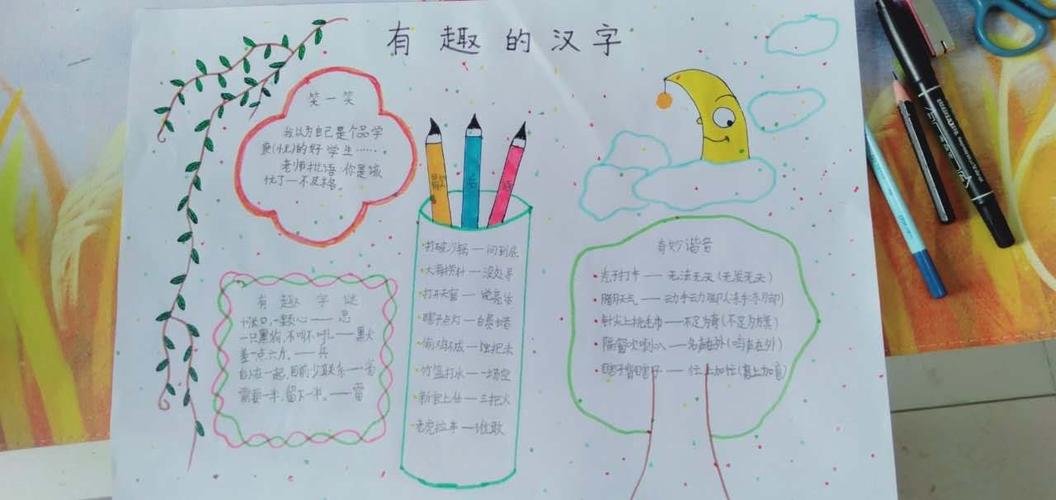 有趣的汉字
笑一笑
我认为自己是个品学
兼(忧)的好学生……。
老师批语:你是该
忧了——不及格。
后
打破沙锅——问到底
大海捞针——没处寻
打开天窗——说亮话
瞎子点灯——白费蜡
偷鸡不成——蚀把米
竹篮打水——一场空
新官上任——三把火
老虎拉车——谁敢
有趣字谜
十张口,一颗心——思
一只黑狗,不叫不吼——黑犬
差一点六斤。——兵
在一起,目前少联系——省
需要一半,留下一半。——雷
奇妙谐音
秃子打伞——无法无天(无发无天)
腊月天气——动手动脚(冻手冻脚)
针尖上——不足为奇
隔窗吹喇叭——名声在外(鸣声在外)
瞎子背瞎子——忙上加忙(盲上加盲)